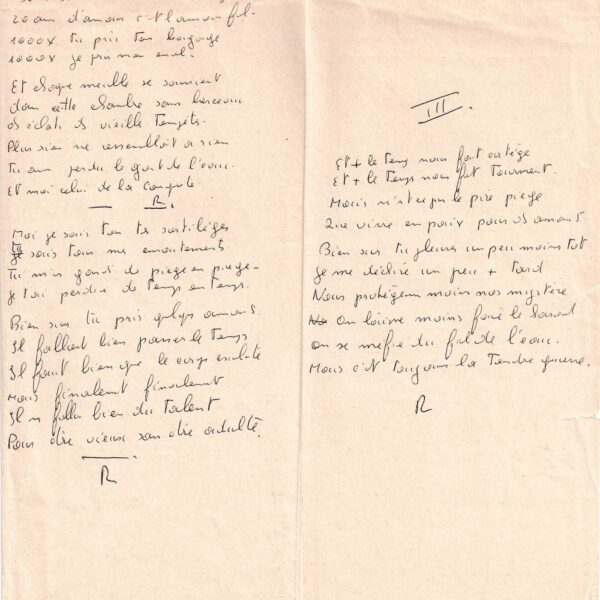 20 ans d'amour c'est l'amour fol.
1000x tu pris ton bagage
1000x je pris mon envol.
Et chaque meuble se souvient
dans cette chambre sans berceau
ds éclats ds vieille tempêts.
Plus rien ne ressemblait à rien
Tu avs perdu le gout de l'eau.
Et moi celui de la conquete
R.
Moi je sais tous tes sortilèges
Tu sais tous mes envoutements.
Tu m'as gardé de piege en piege
Je t'ai perdue de temps en temps.
Bien sur tu pris qulqs amants
Il fallait bien passer le temps
Il faut bien que le corps exulte
Mais finalement finalement
Il ns fallu bien du talent
Pour être vieux sans être adulte.
R
III.
Et + le temps nous fait cortège
Et + le temps nous fait tourment.
Mais n'est ce pas le pire piege
Que vivre en paix pour ds amants
Bien sur tu pleures un peu moins tot
Je me déchire un peu + tard
Nous protégeons moins nos mystere
On laisse moins faire le hasard
On se mefie du fil de l'eau.
Mais c'est toujours la Tendre guerre.
R